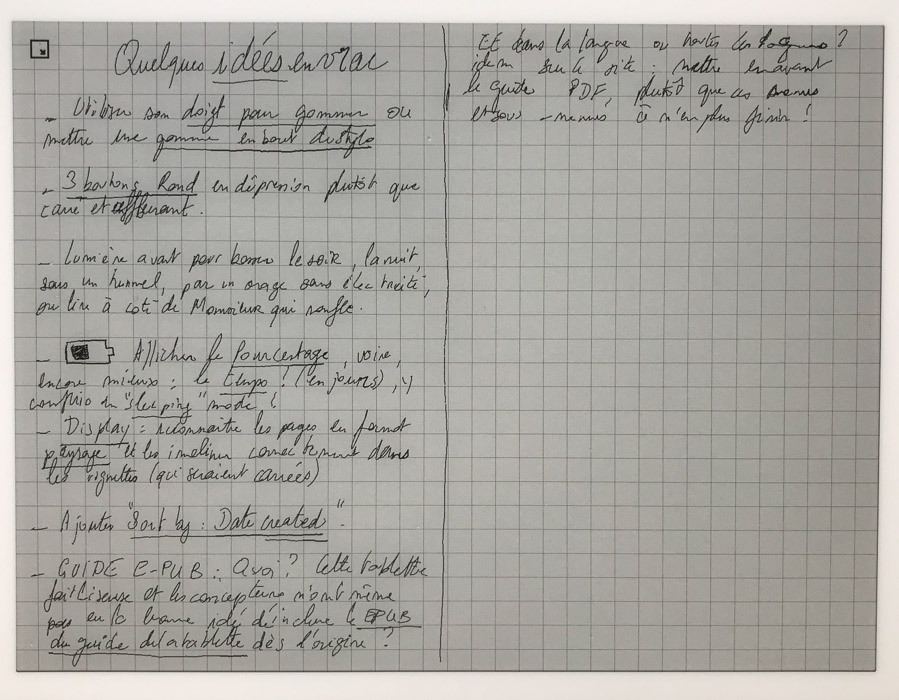 Quelques idées en vrac
- Utiliser son doigt pour gommer ou
mettre une gomme en bout du stylo
- 3 boutons Rond en dépression plutôt que
carré et affleurant.
- Lumière avant pour bosser le soir, la nuit,
sous un tunnel, par un orage sans électricité,
ou lire à coté de Monsieur qui ronfle.
- Afficher le Pourcentage, voire,
encore mieux : le temps ! (en jours), y
compris en "sleeping" mode !
- Display : reconnaitre les pages en format
paysage et les incliner correctement dans
les vignettes (qui seraient carrées)
- Ajouter "Sort by : Date created".
- GUIDE E-PUB : Quoi ? Cette tablette
fait liseuse et les concepteurs n'ont même
pas eu la bonne idée d'inclure le EPUB
du guide de la tablette dès l'origine ?
Et dans la langue ou toutes les langues ?
idem sur le site : mettre en avant
le guide PDF, plutôt que ces menus
et sous-menus à n'en plus finir !